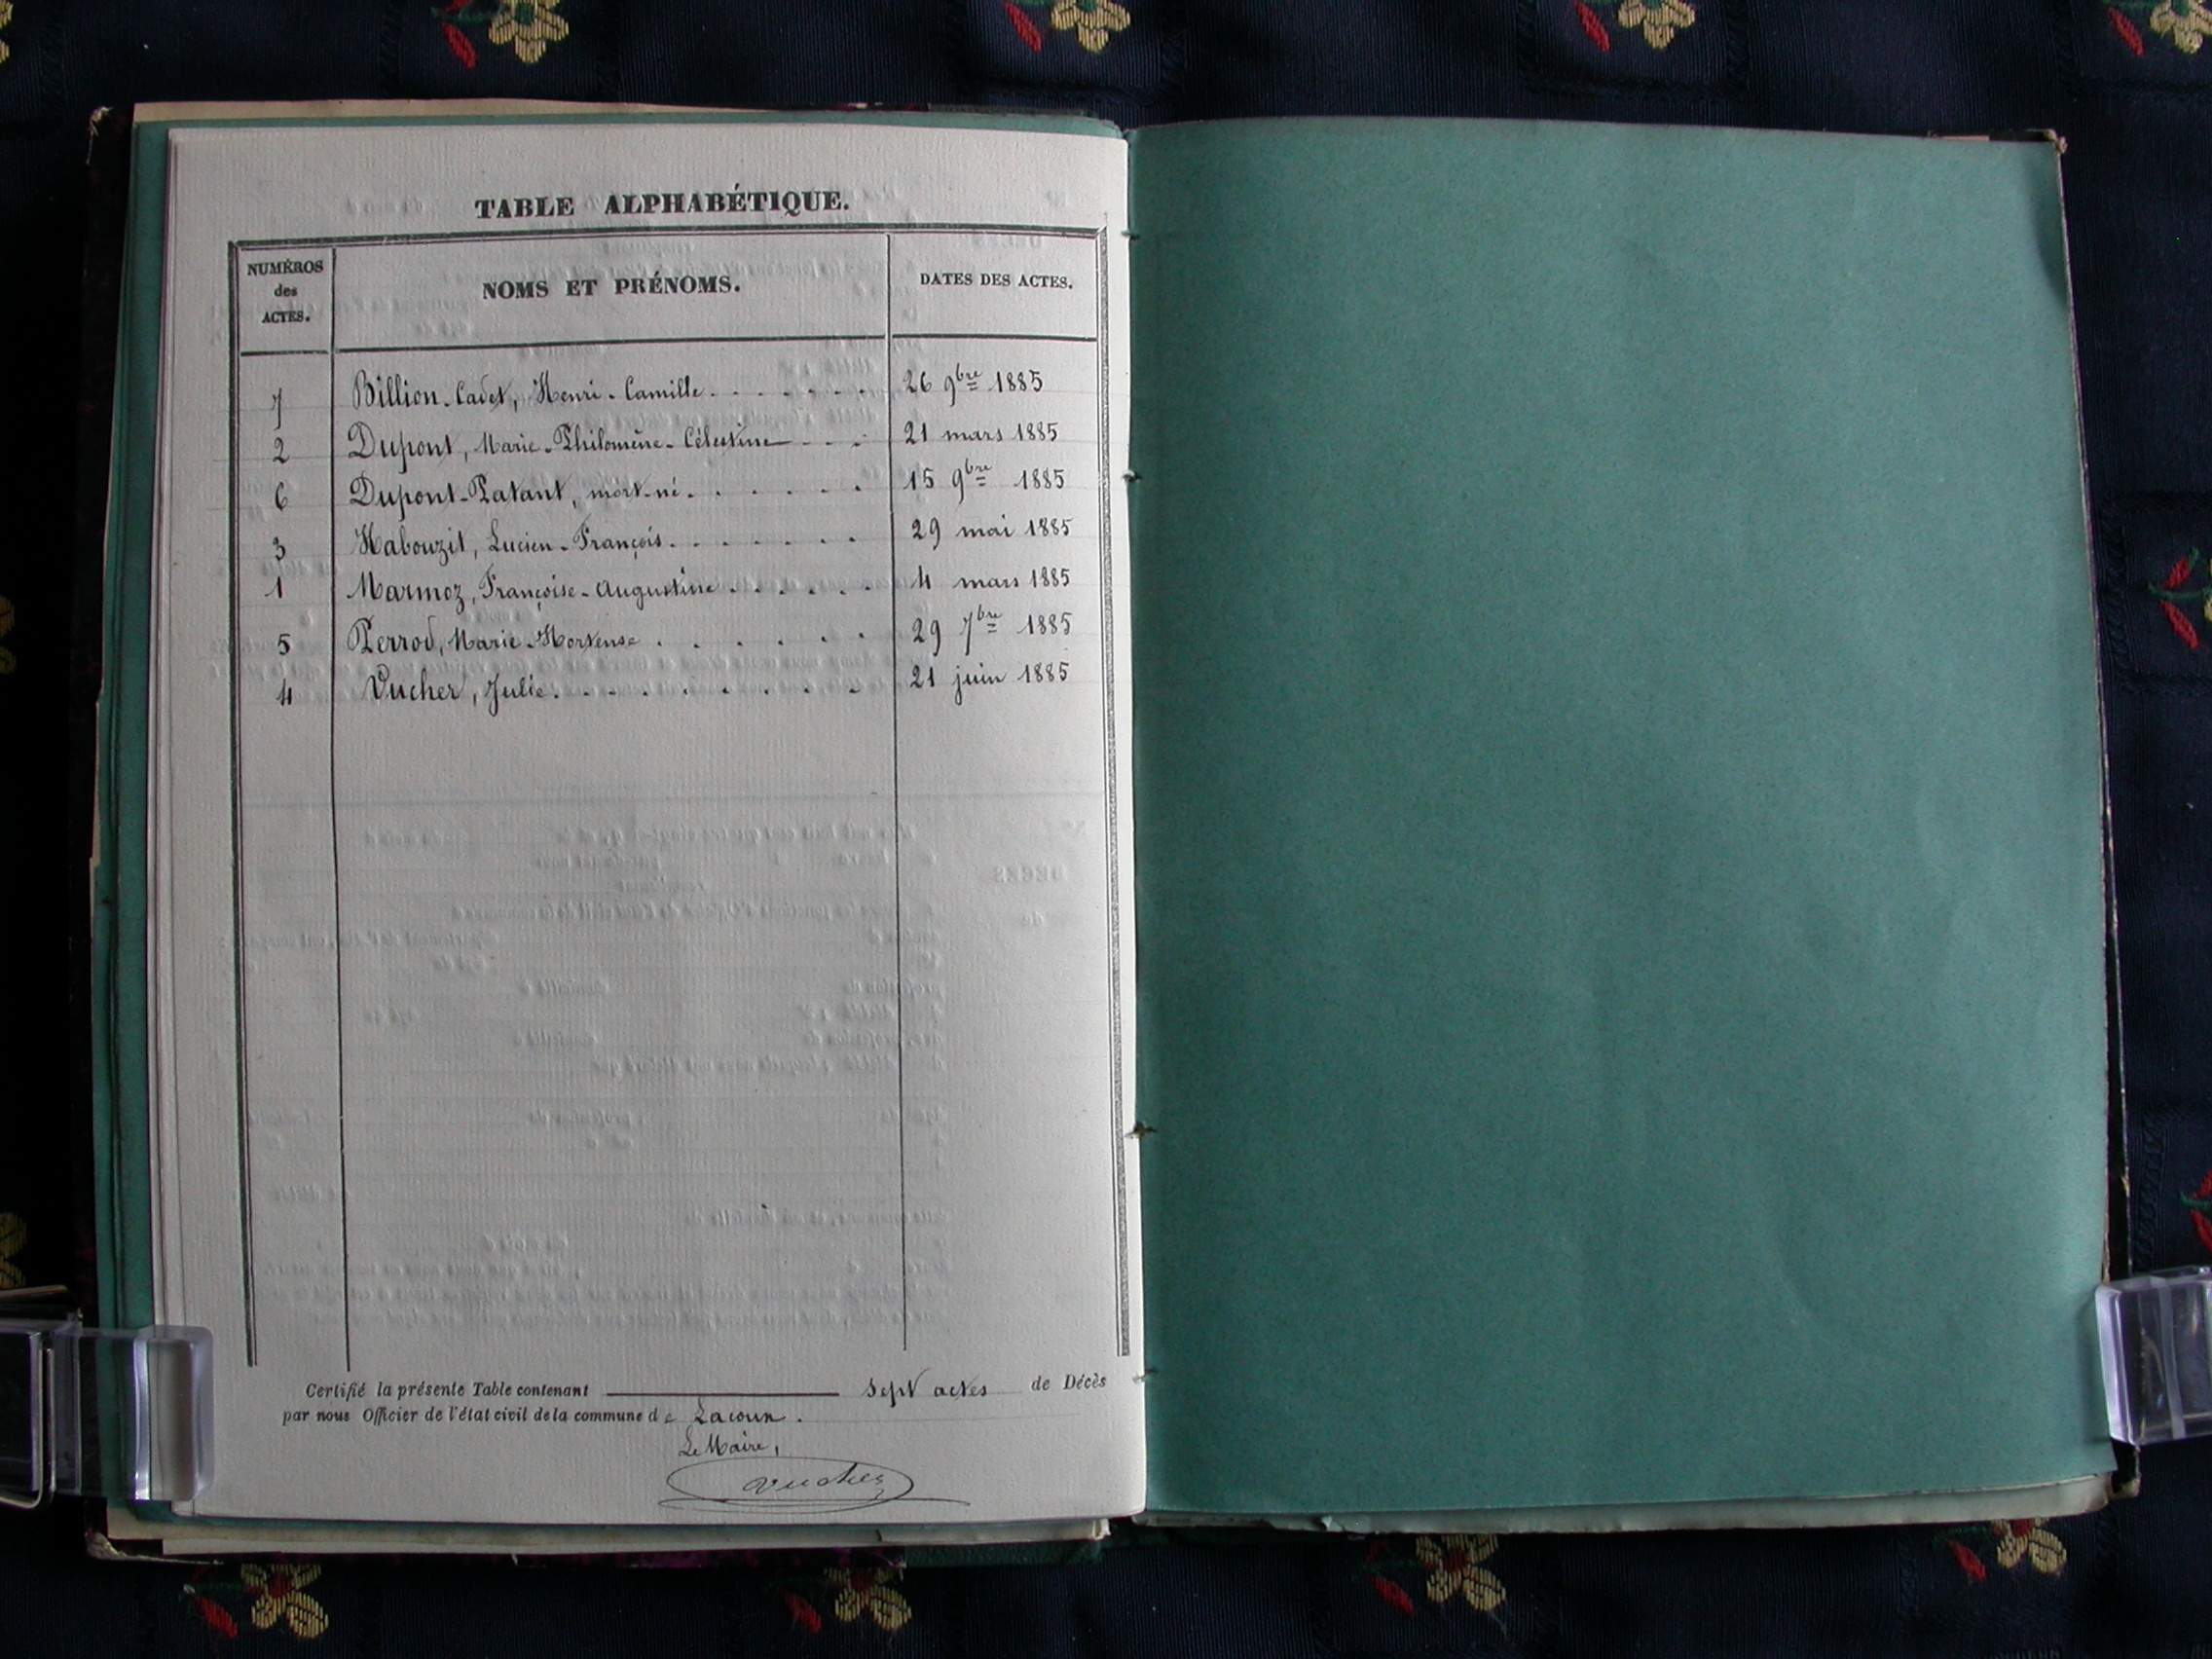 TABLE ALPHABÉTIQUE.
NUMÉROS des ACTES. NOMS ET PRÉNOMS. DATES DES ACTES.
7 Billion-Cadet, Henri-Camille. . . . . . . 26 9bre 1885
2 Dupont, Marie-Philomène-Célestine . . . 21 mars 1885
6 Dupont-Patant, mort-né. . . . . . 15 9bre 1885
3 Habouzit, Lucien-François. . . . . . . 29 mai 1885
1 Marmoz, Françoise-Augustine . . . . . . 4 mars 1885
5 Perrod, Marie-Hortense . . . . . . 29 7bre 1885
4 Vucher, Julie. . . . . . . . . 21 juin 1885
Certifié la présente Table contenant sept actes de Décès
par nous Officier de l'état civil de la commune de Lacoux.
Le Maire,
Vucher